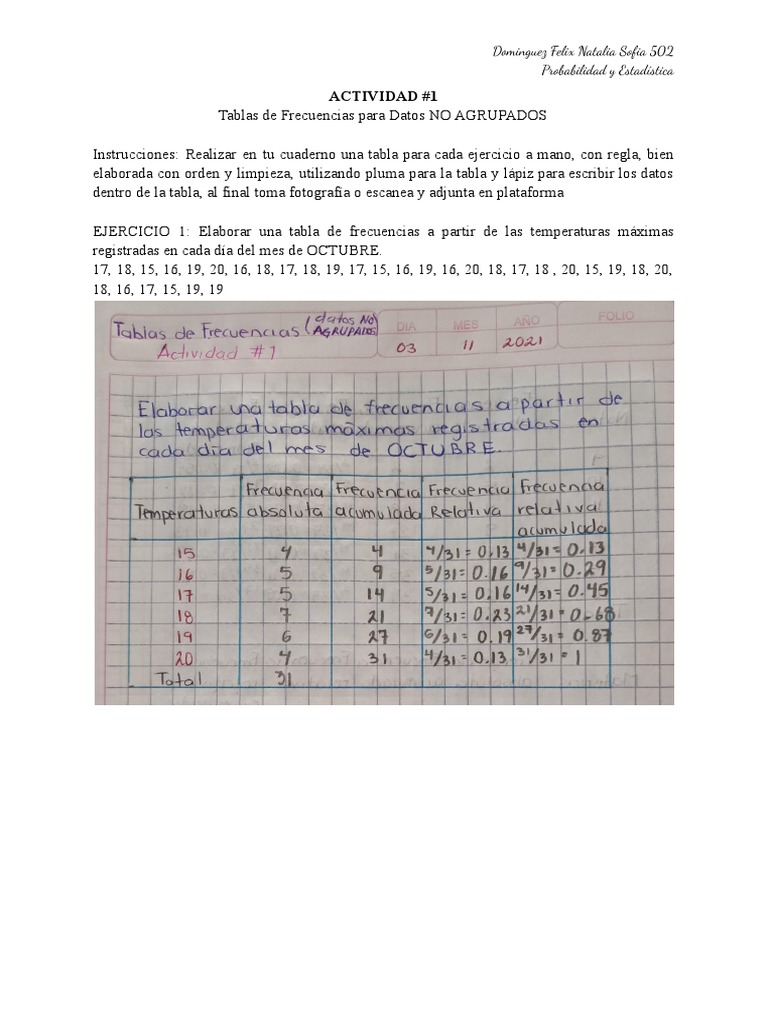 Dominguez Felix Natalia Sofia 502
Probabilidad y Estadistica
ACTIVIDAD #1
Tablas de Frecuencias para Datos NO AGRUPADOS
Instrucciones: Realizar en tu cuaderno una tabla para cada ejercicio a mano, con regla, bien
elaborada con orden y limpieza, utilizando pluma para la tabla y lápiz para escribir los datos
dentro de la tabla, al final toma fotografía o escanea y adjunta en plataforma
EJERCICIO 1: Elaborar una tabla de frecuencias a partir de las temperaturas máximas
registradas en cada día del mes de OCTUBRE.
17, 18, 15, 16, 19, 20, 16, 18, 17, 18, 19, 17, 15, 16, 19, 16, 20, 18, 17, 18 , 20, 15, 19, 18, 20,
18, 16, 17, 15, 19, 19
Tablas de Frecuencias (datos NO AGRUPADOS)
Actividad #1
DIA MES AÑO FOLIO
03 11 2021
Elaborar una tabla de frecuencias a partir de
las temperaturas máximas registradas en
cada día del mes de OCTUBRE.
Temperaturas Frecuencia absoluta Frecuencia acumulada Frecuencia Relativa Frecuencia relativa acumulada
15 4 4 4/31 = 0.13 4/31 = 0.13
16 5 9 5/31 = 0.16 9/31 = 0.29
17 5 14 5/31 = 0.16 14/31 = 0.45
18 7 21 7/31 = 0.23 21/31 = 0.68
19 6 27 6/31 = 0.19 27/31 = 0.87
20 4 31 4/31 = 0.13 31/31 = 1
Total 31